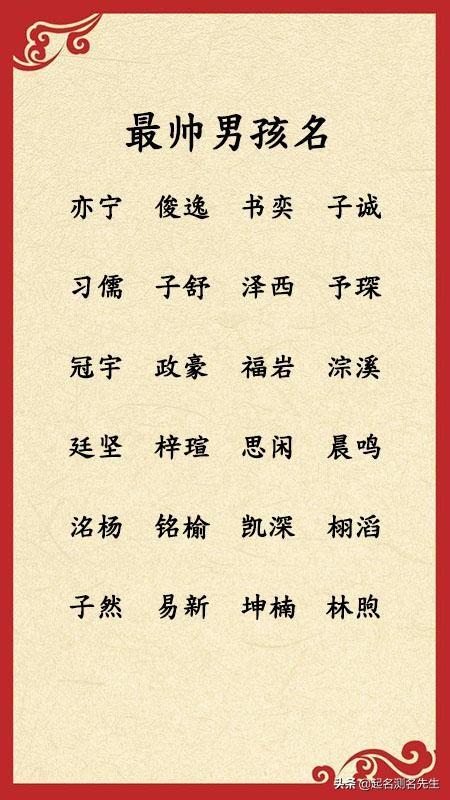 最帅男孩名
亦宁 俊逸 书奕 子诚
习儒 子舒 泽西 予琛
冠宇 政豪 福岩 淙溪
廷坚 梓瑄 思闲 晨鸣
洺杨 铭榆 凯深 栩滔
子然 易新 坤楠 林煦
头条@起名测名先生